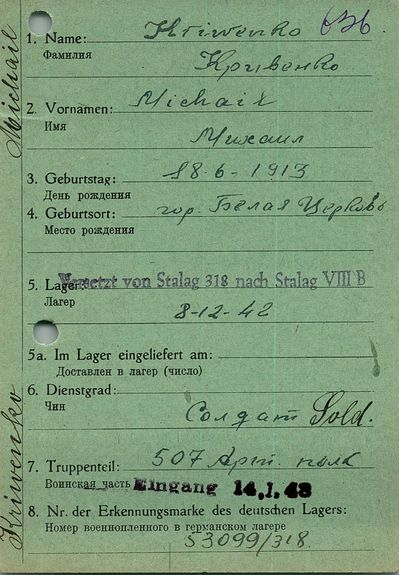 Michail
Kriwenko
1. Name: Kriwenko
Фамилия
Кривенко
2. Vornamen: Michail
Имя
Михаил
3. Geburtstag: 18-6-1913
День рождения
4. Geburtsort: гор. Белая Церковь
Место рождения
Versetzt von Stalag 318 nach Stalag VIII B
5. Lager:
Лагер
8-12-42
5a. Im Lager eingeliefert am:
Доставлен в лагер (число)
6. Dienstgrad:
Чин
Солдат Sold.
7. Truppenteil: 507 Арт. полк
Воинская часть Eingang 14.I.43
8. Nr. der Erkennungsmarke des deutschen Lagers:
Номер военнопленного в германском лагере
53099/318.